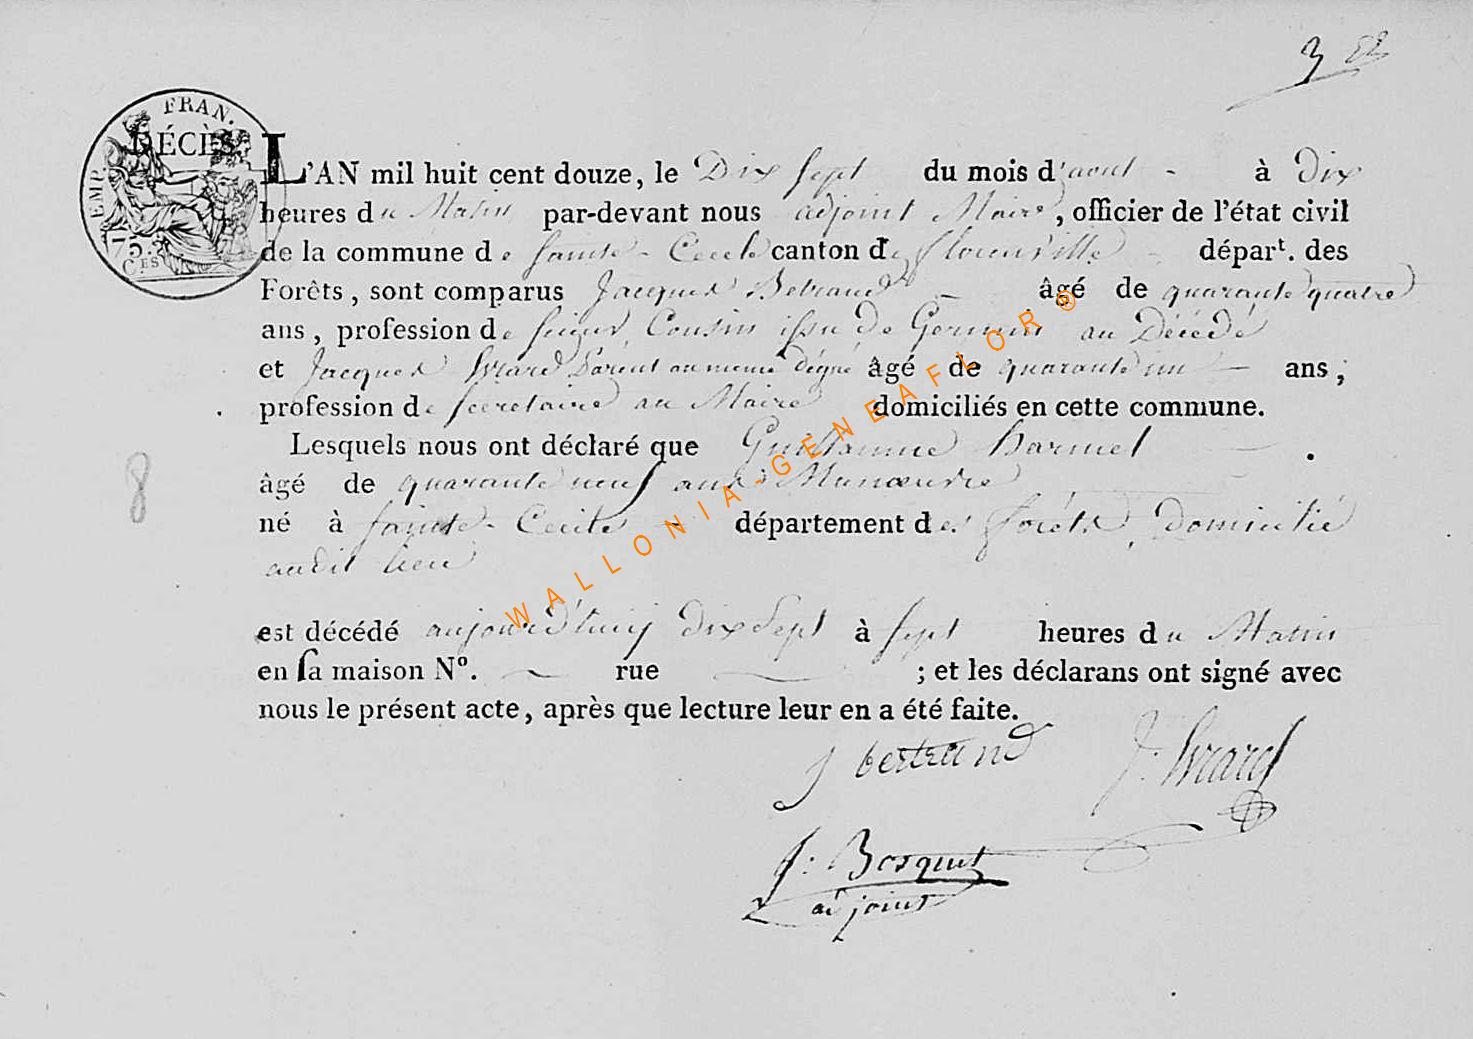 EMP. FRAN.
75.
Ces
DÉCÈS
L'AN mil huit cent douze, le Dix Sept du mois d'aout à Dix
heures du Matin par-devant nous adjoint Maire, officier de l'état civil
de la commune de Sainte-Cecile canton de florenville départ. des
Forêts, sont comparus Jacques Betrand âgé de quarante quatre
ans, profession de Cousin issu de Germain au Décédé
et Jacques Evrard Parent au meme dégré âgé de quarante un ans;
profession de Secretaire au Maire domiciliés en cette commune.
Lesquels nous ont déclaré que Guillaume Harmel
âgé de quarante neuf ans Manoeuvre
né à Sainte-Cecile département des forêts, Domicilié
audit lieu
est décédé aujourd'huij dix Sept à Sept heures du Matin
en sa maison N°. rue ; et les déclarans ont signé avec
nous le présent acte, après que lecture leur en a été faite.
J bertrand J: Evrard
J: Bosquet
adjoint
8
WALLONIA-GENEAFLOR®